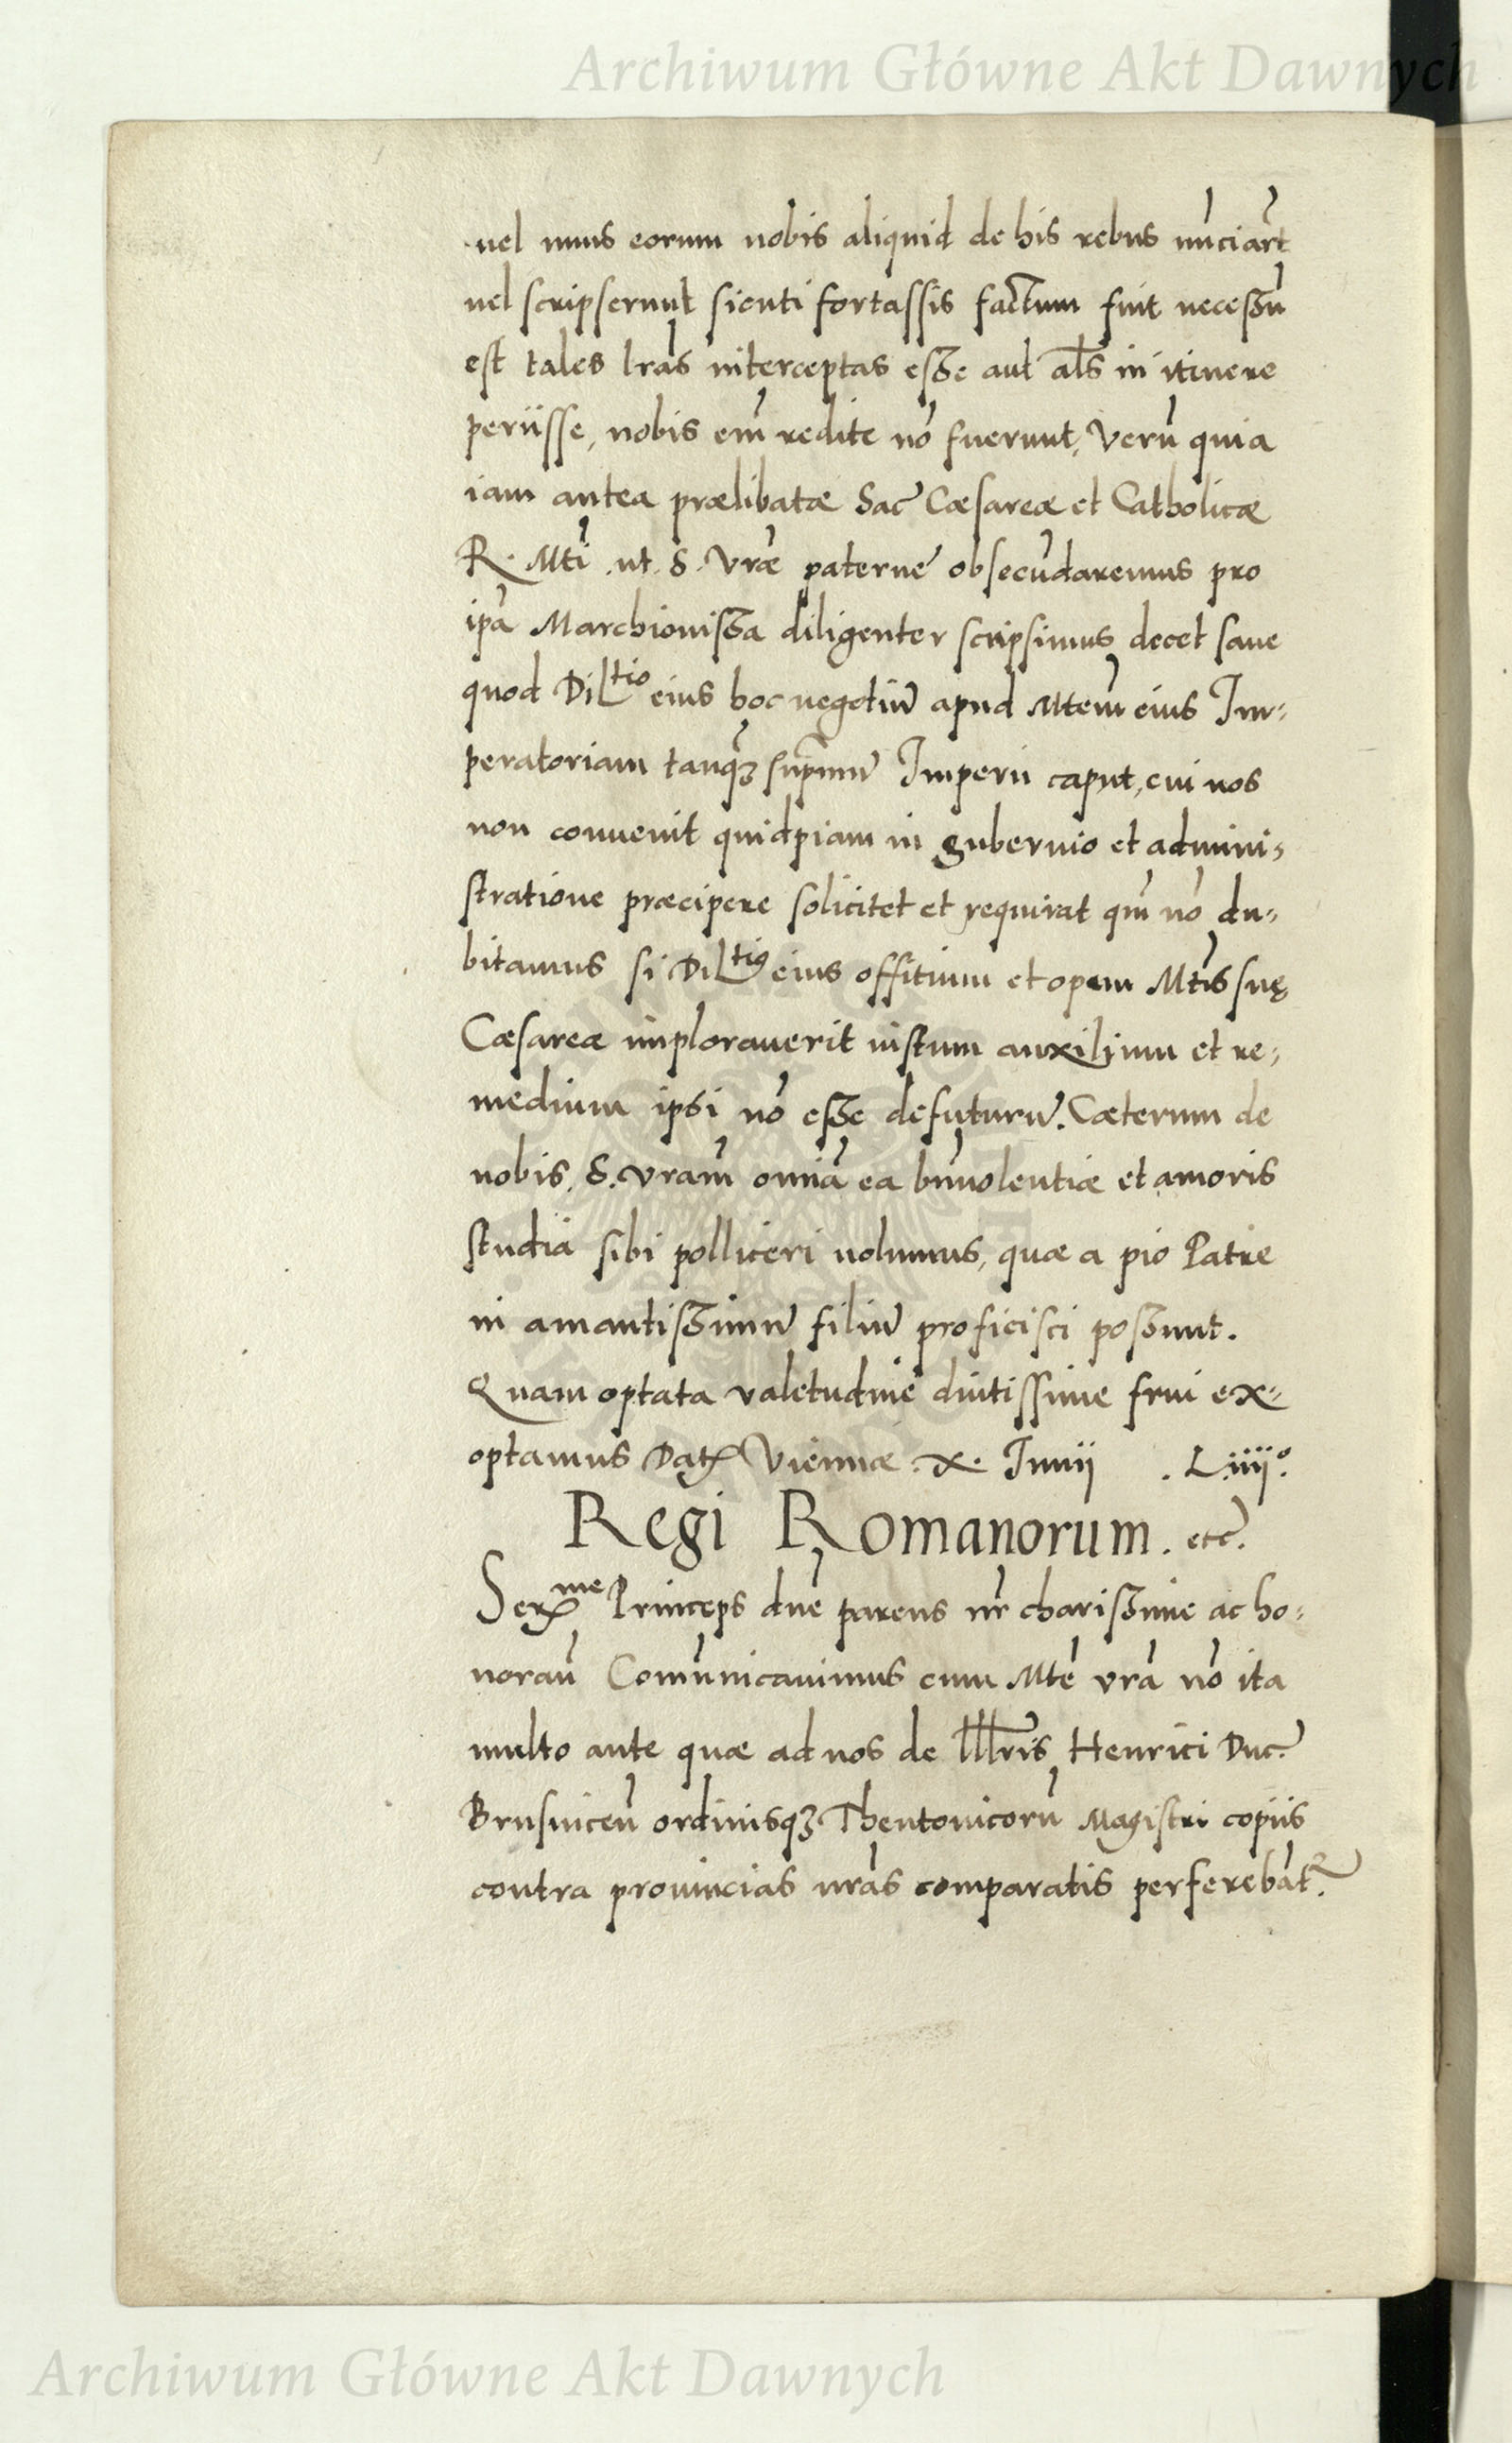 Archiwum Główne Akt Dawnych
uel unus eorum nobis aliquid de his rebus nũciar̃t
uel scripserunt sicuti fortassis factum fuit necessũ
est tales lr̃as interceptas esse aut al̃s in itinere
periisse, nobis em̃ redite nõ fuerunt, Verũ quia
iam antea prælibatæ Sac̃ Cæsareæ et Catholicæ
R. Mti̴ ut S. Vr̃æ paterne obsecũdaremus pro
ip̃a Marchionissa diligenter scripsimus decet sane
quod Diltio eius hoc negotiũ apud Mtem̃ eius Im-
peratoriam tanq̃ʒ supr̃mũ Imperii caput, cui nos
non conuenit quidpiam in gubernio et admini-
stratione præcipere solicitet et requirat qm̃ nõ du-
bitamus si Diltio eius offitium et opem Mtis̃ suę
Cæsareæ implorauerit iustum auxilium et re-
medium ipsi nõ esse defuturũ. Cæterum de
nobis S. vram̃ omnia ea bñuolentiæ et amoris
studia sibi polliceri uolumus, quæ a pio Patre
in amantissimũ filiũ proficisci possunt.
Quam optata valetudine diutissime frui ex-
optamus Datꝭ Viennæ . x. Iunij . Liiijº.
Regi Romanorum. etc̃.
Serme Princeps dñe parens nr̃ charissime ac ho-
noran̄ Com̃unicauimus cum Mtẽ vr̃a nõ ita
multo ante quæ ad nos de Illr̃is Henrici Duc̃
Brusuicen̄ ordinisqʒ Theutonicorũ Magistri copiis
contra prouincias nr̃as comparatis perferebãt.
Archiwum Główne Akt Dawnych